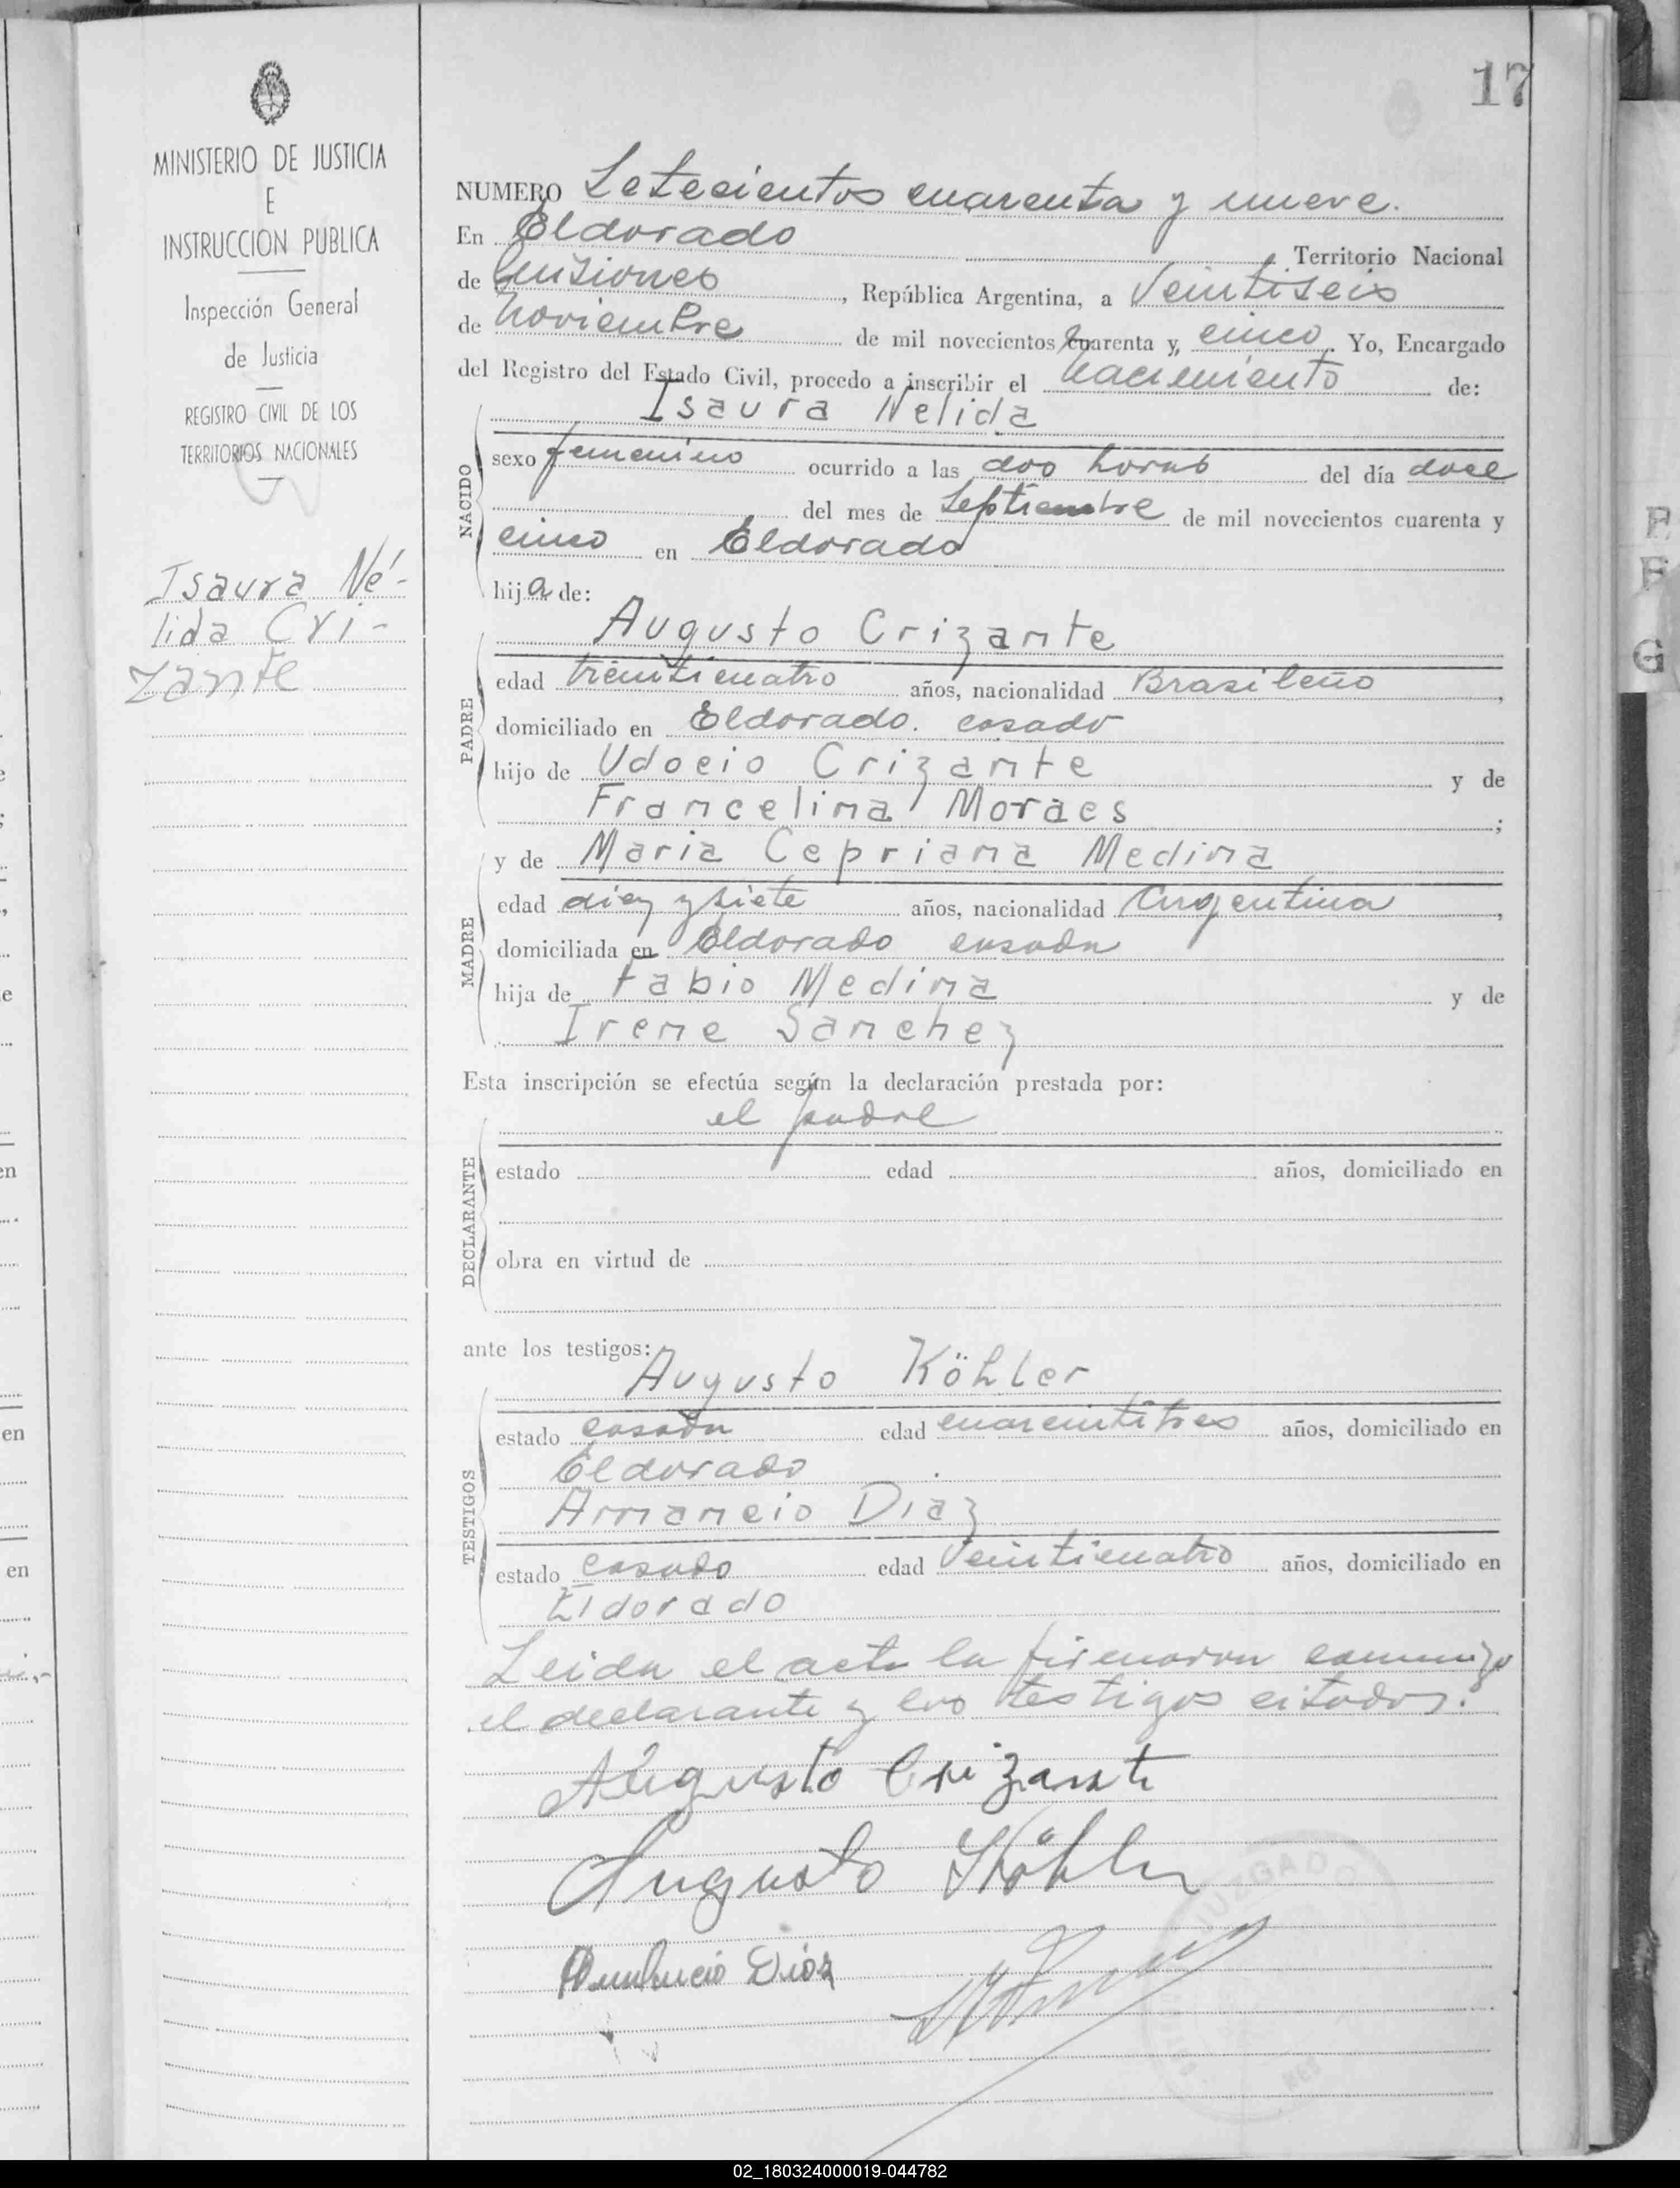 17
MINISTERIO DE JUSTICIA
E
INSTRUCCION PUBLICA
Inspección General
de Justicia
REGISTRO CIVIL DE LOS
TERRITORIOS NACIONALES
Isaura Né-
lida Cri-
zante
NUMERO Setecientos cuarenta y nueve.
En Eldorado Territorio Nacional
de Misiones, República Argentina, a Veintiseis
de Noviembre de mil novecientos cuarenta y, cinco. Yo, Encargado
del Registro del Estado Civil, procedo a inscribir el Nacimiento de:
Isaura Nelida
NACIDO
sexo femenino ocurrido a las dos horas del día doce
del mes de Septiembre de mil novecientos cuarenta y
cinco en Eldorado
hija de:
Augusto Crizante
PADRE
edad treinticuatro años, nacionalidad Brasileño,
domiciliado en Eldorado. casado
hijo de Udocio Crizante y de
Francelina Moraes;
y de Maria Cepriana Medina
MADRE
edad diez y siete años, nacionalidad Argentina,
domiciliada en Eldorado casada
hija de Fabio Medina y de
Irene Sanchez
Esta inscripción se efectúa según la declaración prestada por:
el padre
DECLARANTE
estado edad años, domiciliado en
obra en virtud de
ante los testigos:
Augusto Köhler
TESTIGOS
estado casado edad cuarentitres años, domiciliado en
Eldorado
Amancio Diaz
estado casado edad Veinticuatro años, domiciliado en
Eldorado
Leida el acta la firmaron conmigo
el declarante y los testigos citados.
Augusto Crizante
Augusto Köhler
Diaz
JUZGADO
02_180324000019-044782